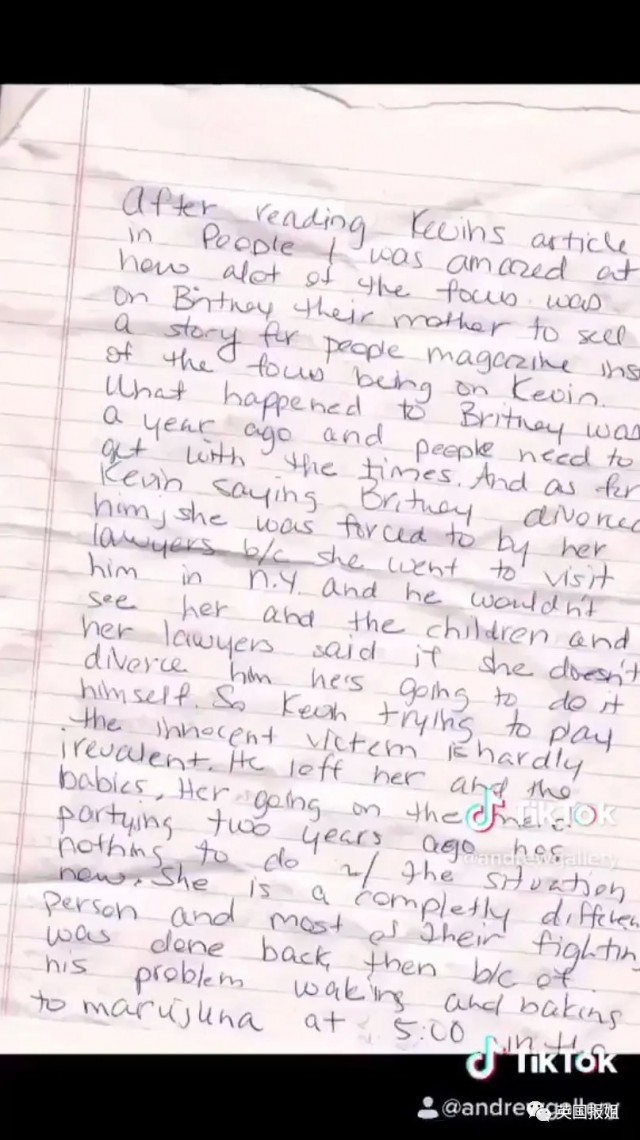 After reading Kevins article
in People I was amazed at
how alot of the focus was
on Britney their mother to sell
a story for people magazine ins
of the focus being on Kevin.
What happened to Britney was
a year ago and people need to
get with the times. And as for
Kevin saying Britney divorced
him, she was forced to by her
lawyers b/c she went to visit
him in N.Y. and he wouldn't
see her and the children and
her lawyers said if she doesn't
diverce him he's going to do it
himself. So Kevin trying to play
the innocent victem is hardly
irevalent. He left her and the
babies. Her going on the
partying two years ago has
nothing to do w/ the situation
now. She is a completly differen
person and most of their fightin
was done back then b/c of
his problem waking and baking
to marujuna at 5:00 in the
TikTok
@andrewgallery
TikTok
@andrewgallery
英国报姐